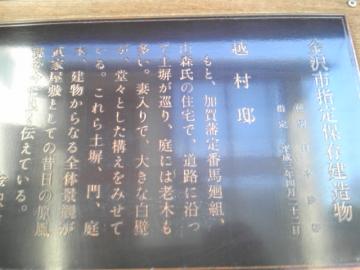 金沢市指定保存建造物
指定 平成 年四月二十二日
越村邸
もと、加賀藩定番馬廻組、
由森氏の住宅で、道路に沿っ
て土塀が巡り、庭には老木も
多い。妻入りで、大きな白壁
が、堂々とした構えをみせて
いる。これら土塀、門、庭
木、建物からなる全体景観が
武家屋敷としての昔日の原風
伝えている。